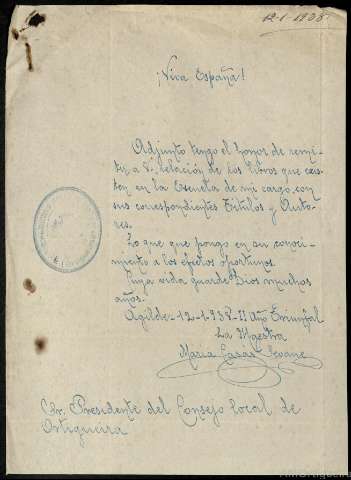 12-1-1938
¡Viva España!
Adjunto tengo el honor de remi-
tir a V. relación de los libros que exis-
ten en la Escuela de mi cargo, con
sus correspondientes Titulos y Auto-
res.
Lo que que pongo en su conoci-
miento a los efectos oportunos.
Cuya vida guarde Dios muchos
años.
12-1-938-II Año Triunfal
La Maestra
Maria Casas Seoane
Sr. Presidente del Consejo Local de
Ortigueira